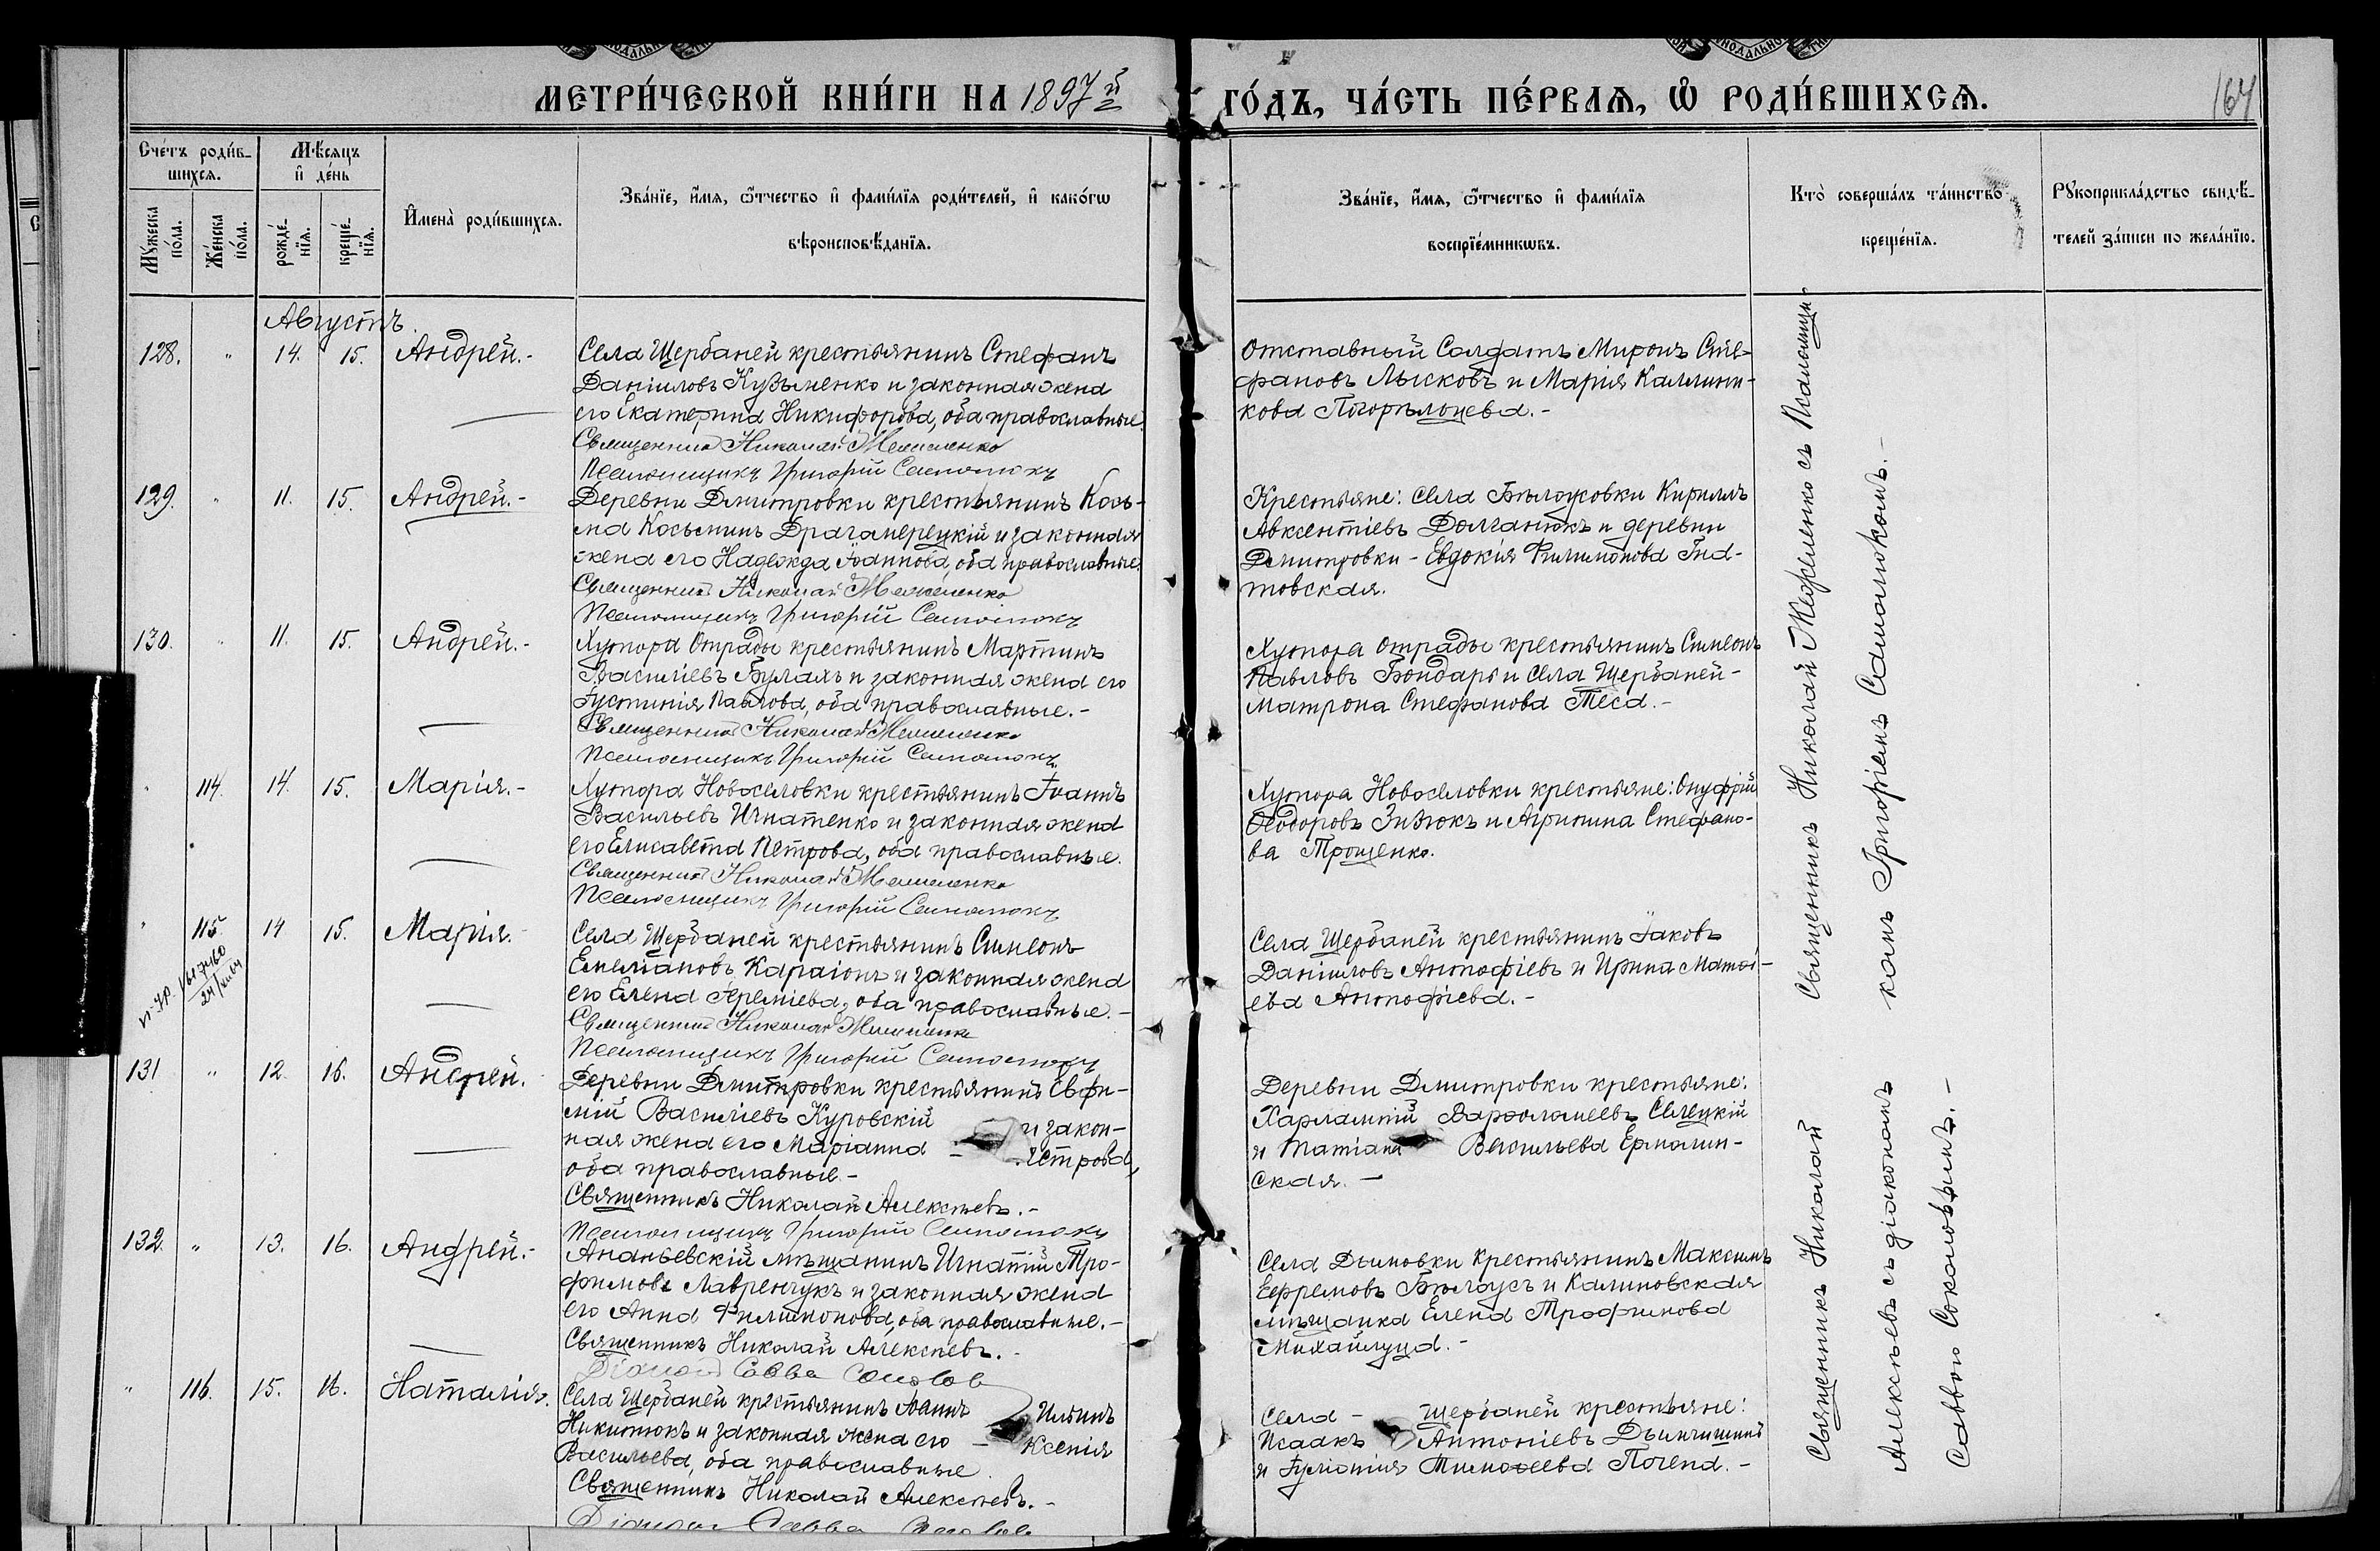 МЕТРИ́ЧЕСКОЙ КНИ́ГИ НА 1897й
ГО́ДЪ, ЧА́СТЬ ПЕ́РВАѦ, Ѡ РОДИ́ВШИХСѦ.
164
Сче́тъ роди́в-
шихсѧ.
Мѣ́сѧцъ
и҆ де́нь
Мꙋ́жеска
по́ла.
Же́нска
по́ла.
рожде́-
нїѧ.
креще́-
нїѧ.
И҆мена̀ роди́вшихсѧ.
Зва́нїе, и҆́мѧ, ѻ҆́тчество и҆ фами́лїѧ роди́телей, и҆ како́гѡ
вѣроисповѣ́данїѧ.
Зва́нїе, и҆́мѧ, ѻ҆́тчество и҆ фами́лїѧ
воспрїе́мникѡвъ.
Кто̀ соверша́лъ та́инство
креще́нїѧ.
Рꙋкоприкла́дство свидѣ́-
телей за́писи по жела́нїю.
Августъ.
128. " 14. 15. Андрей.-
Села Щербаней крестьянинъ Стефанъ
Даніиловъ Кузьменко и законная жена
его Екатерина Никифорова, оба православные.
Священникъ Николай Межеленко
Псаломщикъ Григорій Самотокъ
Отставный Солдатъ Миронъ Сте-
фановъ Лысковъ и Марія Каллини-
кова Погорѣлоцева.-
129. " 11. 15. Андрей.-
Деревни Дмитровки крестьянинъ Кось-
ма Косьминъ Драгамерецкій и законная
жена его Надежда Іоаннова, оба православные.
Священникъ Николай Межеленко
Псаломщикъ Григорій Самотокъ
Крестьяне: села Бѣлоусовки Кириллъ
Авксентіевъ Долганюкъ и деревни
Дмитровки - Евдокія Филимонова Гна-
товская.
130. " 11. 15. Андрей.-
Хутора Отрады крестьянинъ Мартинъ
Василіевъ Булахъ и законная жена его
Іустинія Павлова, оба православные.-
Священникъ Николай Межеленко
Псаломщикъ Григорій Самотокъ
Хутора Отрады крестьянинъ Симеонъ
Павловъ Бондарь и села Щербаней-
Матрона Стефанова Теса.-
" 114. 14. 15. Марія.-
Хутора Новоселовки крестьянинъ Іоаннъ
Васильевъ Игнатенко и законная жена
его Елисавета Петрова, оба православные.
Священникъ Николай Межеленко
Псаломщикъ Григорій Самотокъ
Хутора Новоселовки крестьяне: Онуфрій
Ѳеодоровъ Зизюкъ и Агрипина Стефано-
ва Трощенко.
" 115. 14 15. Марія.-
Села Щербаней крестьянинъ Симеонъ
Емеліановъ Караіонъ и законная жена
его Елена Іереміева, оба православные.-
Священникъ Николай Межеленко
Псаломщикъ Григорій Самотокъ
Села Щербаней крестьянинъ Іаковъ
Даніиловъ Антофіевъ и Ирина Матѳі-
ева Антофіева.-
131 " 12. 16. Андрей.
Деревни Дмитровки крестьянинъ Евфи-
мій Василіевъ Куровскій и закон-
ная жена его Маріанна - Петрова,
оба православные.-
Священникъ Николай Алексѣевъ.-
Псаломщикъ Григорій Самотокъ
Деревни Дмитровки крестьяне:
Харлампій Варѳоломеевъ Селецкій
и Татіана Васильева Ермолин-
ская.-
132. " 13. 16. Андрей.-
Ананьевскій мѣщанинъ Игнатій Тро-
фимовъ Лавренчукъ и законная жена
его Анна Филимонова, оба православные.-
Священникъ Николай Алексѣевъ.-
Діаконъ Савва Соколов
Села Дымовки крестьянинъ Максимъ
Ефремовъ Бѣлоусъ и Калиновская
мѣщанка Елена Трофимова
Михайлуца.-
" 116. 15. 16. Наталія.
Села Щербаней крестьянинъ Іоаннъ Ильинъ
Никитюкъ и законная жена его - Ксенія
Васильева, оба православные.
Священникъ Николай Алексѣевъ.-
Діаконъ Савва Соколов
Села - Щербаней крестьяне:
Исаакъ Антоніевъ Дымчишинъ
и Іуліанія Тимоѳеева Погена.-
Священникъ Николай Межеленко съ Псаломщи-
комъ Григоріемъ Самотокомъ.-
Священникъ Николай
Алексѣевъ съ діакономъ
Саввою Соколовымъ.-